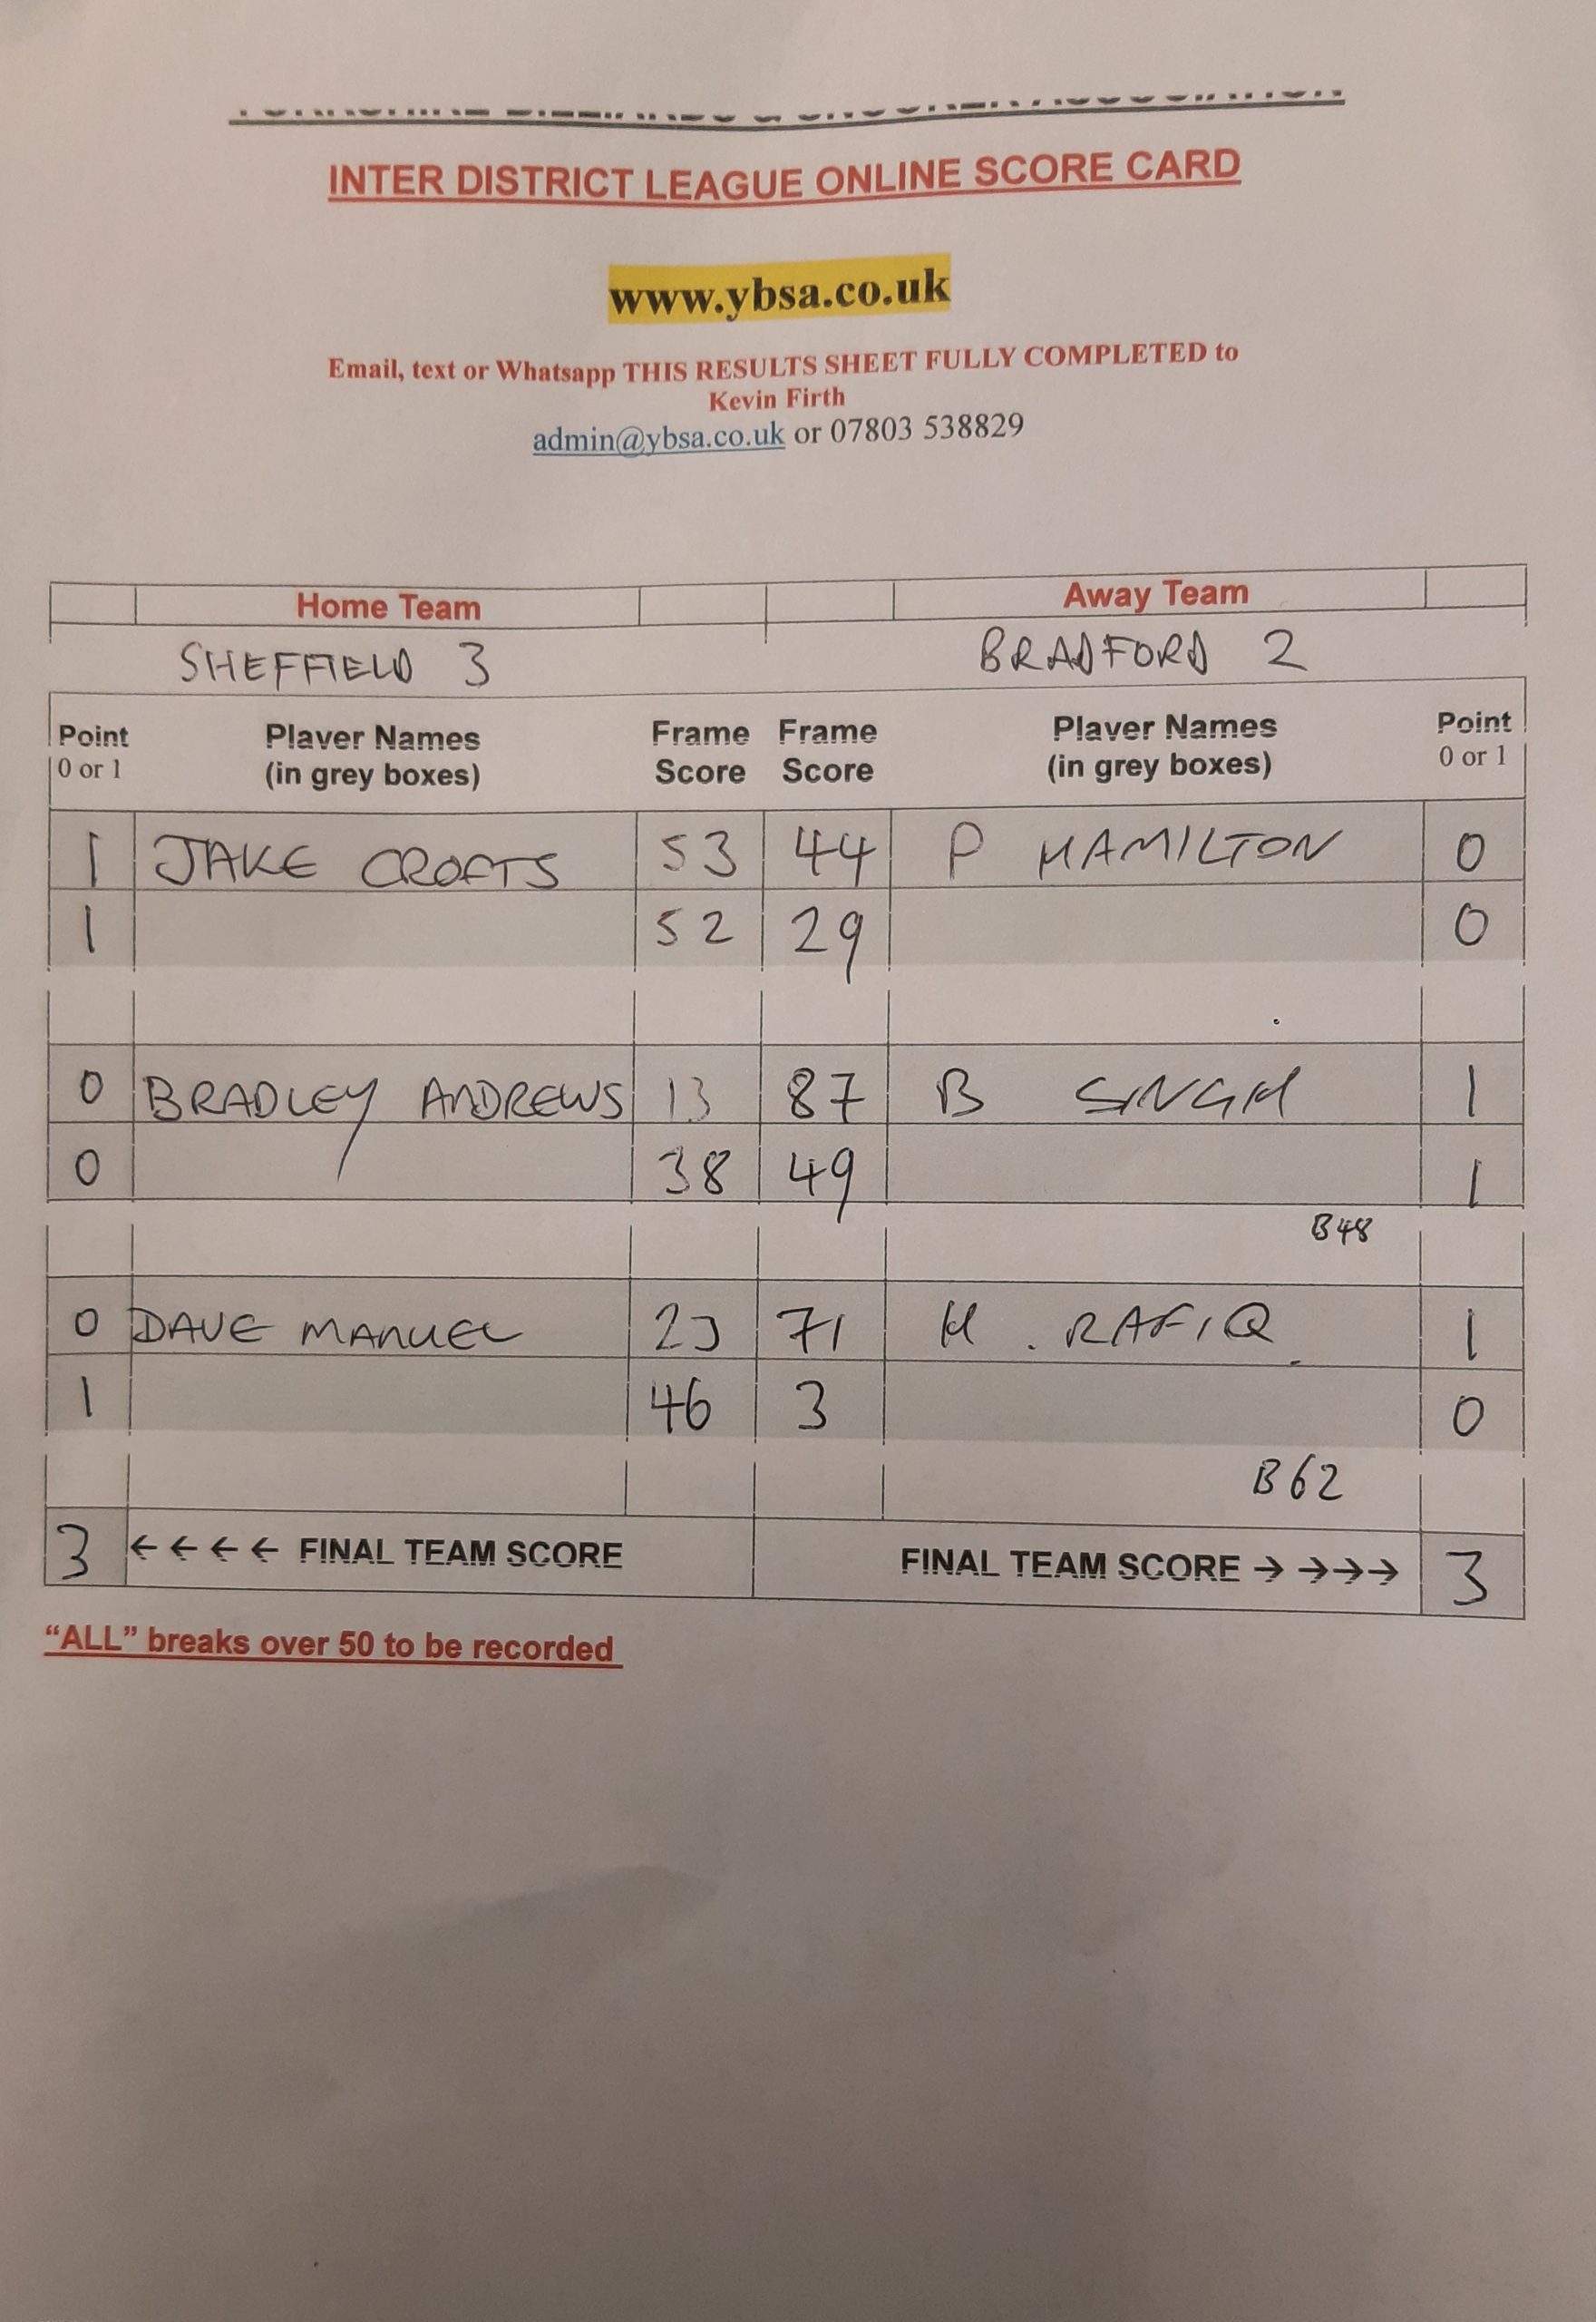 INTER DISTRICT LEAGUE ONLINE SCORE CARD
www.ybsa.co.uk
Email, text or Whatsapp THIS RESULTS SHEET FULLY COMPLETED to
Kevin Firth
admin@ybsa.co.uk or 07803 538829
Home Team Away Team
SHEFFIELD 3 BRADFORD 2
Point Player Names Frame Frame Player Names Point
0 or 1 (in grey boxes) Score Score (in grey boxes) 0 or 1
1 JAKE CROFTS 53 44 P HAMILTON 0
1 52 29 0
0 BRADLEY ANDREWS 13 87 B SINGH 1
0 38 49 1
B48
0 DAVE MANUEL 23 71 H. RAFIQ 1
1 46 3 0
B62
3 ←←←← FINAL TEAM SCORE FINAL TEAM SCORE →→→→ 3
“ALL” breaks over 50 to be recorded